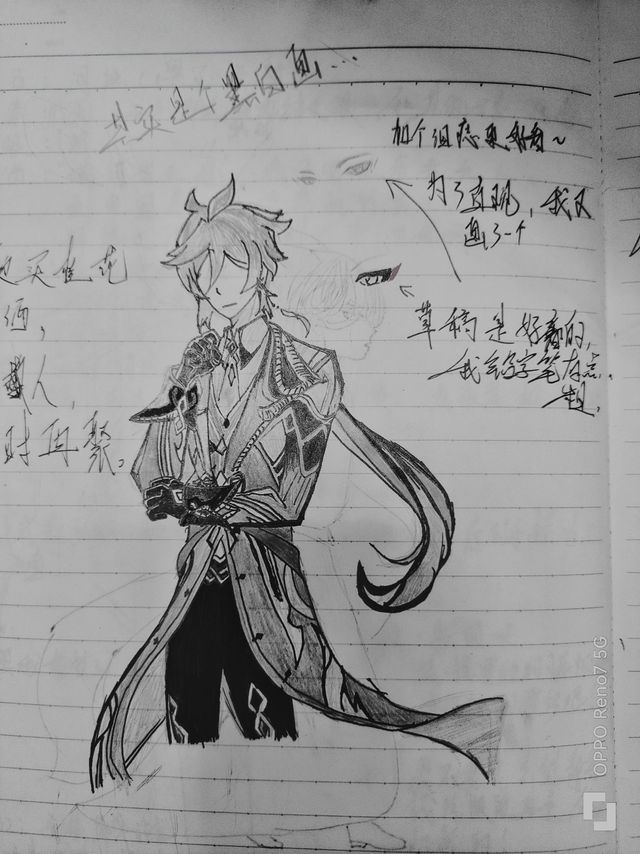 其实是个黑白画...
加个泪痣更好看~
为了直观，我又
画了一个
草稿是好看的，
我签字笔有点
粗，
桂花
酒，
人，
时再聚。
OPPO Reno7 5G